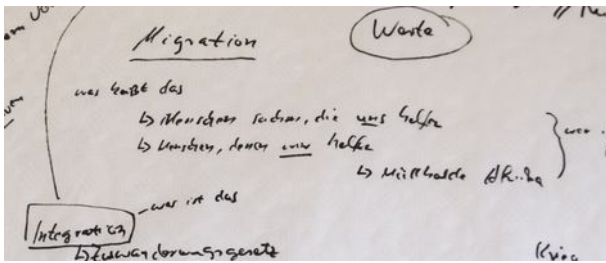 Migration
Werte
was heißt das
↳ Menschen suchen, die uns helfen
↳ Menschen, denen wir helfen
↳ Müllhalde Afrika
was ist das
Integration
↳ Zuwanderungsgesetz
Krieg